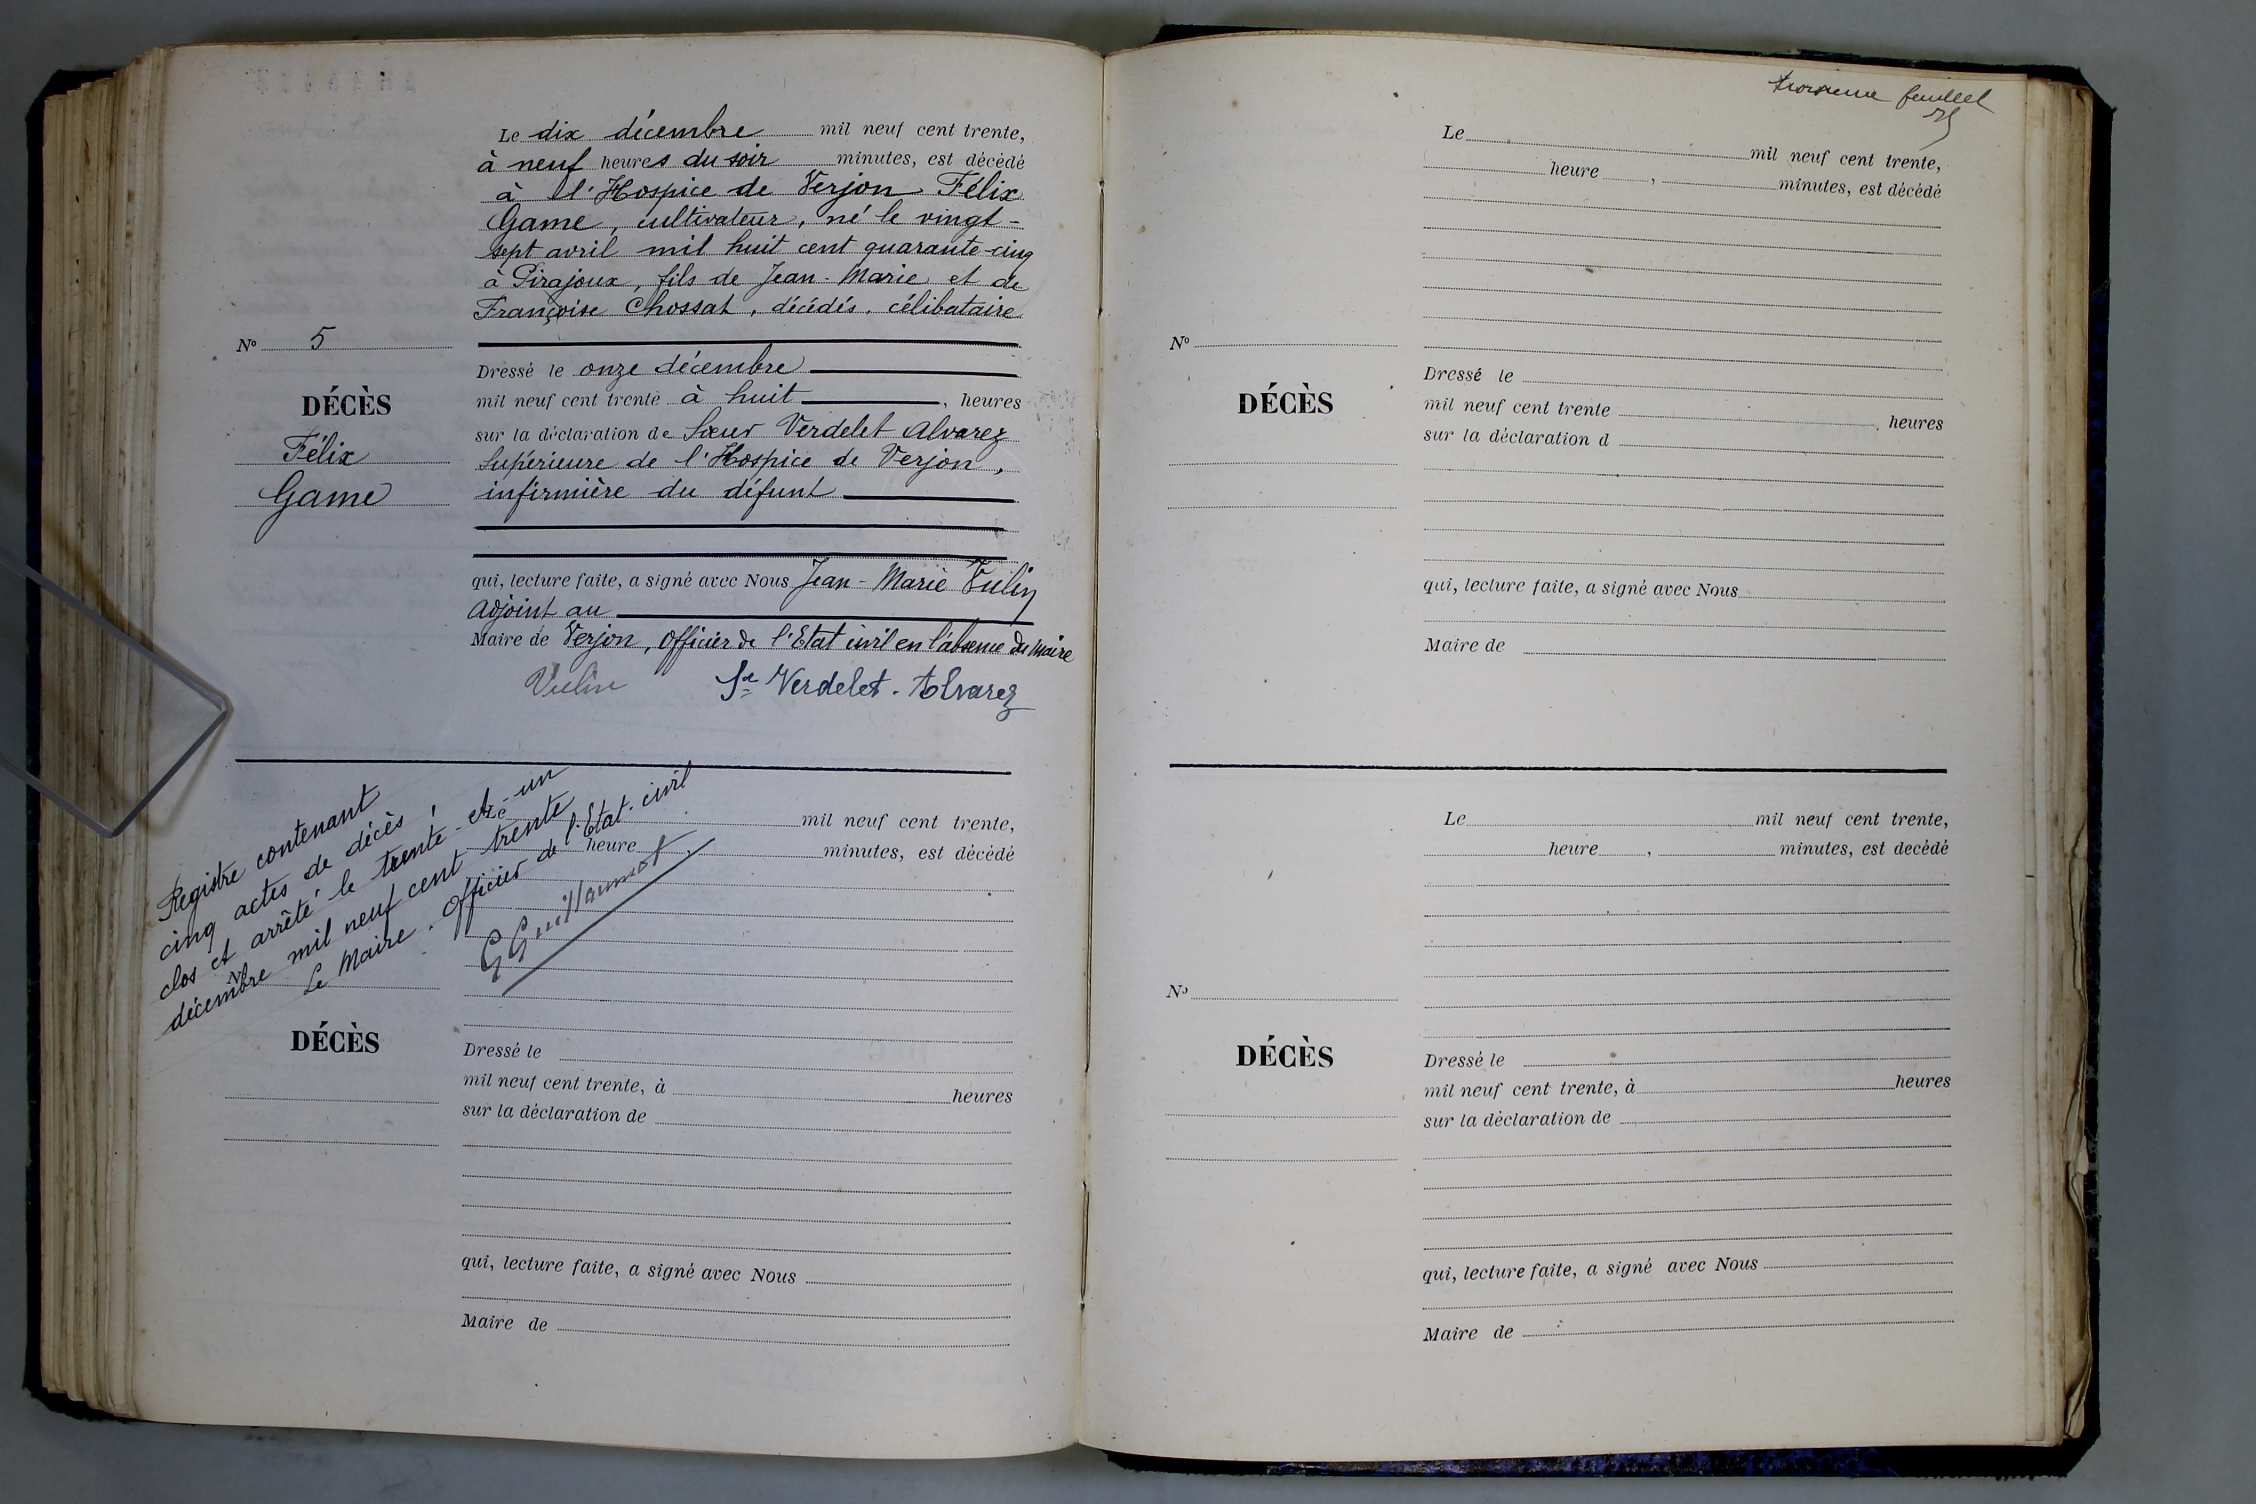 Le dix décembre mil neuf cent trente,
à neuf heures du soir minutes, est décédé
à l'Hospice de Verjon Félix
Game, cultivateur, né le vingt-
sept avril mil huit cent quarante-cinq
à Pirajoux, fils de Jean-Marie et de
Françoise Chossat, décédés, célibataire
No 5
DÉCÈS
Félix
Game
Dressé le onze décembre
mil neuf cent trente à huit, heures
sur la déclaration de Sœur Verdelet Alvarez
Supérieure de l'Hospice de Verjon,
infirmière du défunt
qui, lecture faite, a signé avec Nous Jean-Marie Vulin
adjoint au
Maire de Verjon, Officier de l'Etat civil en l'absence du Maire
Vulin Sr Verdelet. Alvarez
Registre contenant
cinq actes de décès,
clos et arrêté le trente-et-un
décembre mil neuf cent trente
Le Maire. Officier de l'Etat-civil
G Guillaumot
Le mil neuf cent trente,
heure, minutes, est décédé
No
DÉCÈS
Dressé le
mil neuf cent trente, à heures
sur la déclaration de
qui, lecture faite, a signé avec Nous
Maire de
troisième feuillet
Le mil neuf cent trente,
heure, minutes, est décédé
No
DÉCÈS
Dressé le
mil neuf cent trente, heures
sur la déclaration d
qui, lecture faite, a signé avec Nous
Maire de
Le mil neuf cent trente,
heure, minutes, est decédé
No
DÉCÈS
Dressé le
mil neuf cent trente, à heures
sur la déclaration de
qui, lecture faite, a signé avec Nous
Maire de